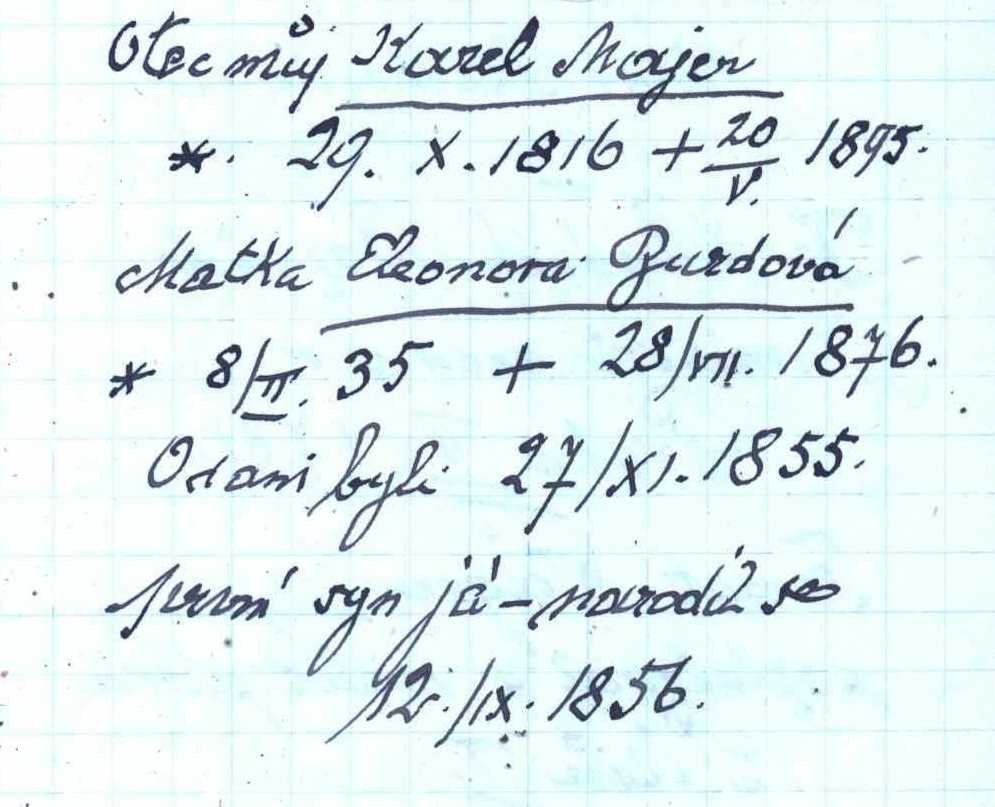 Otec můj Karel Majer
*. 29. X. 1816 + 20/V. 1895.
Matka Eleonora Burdová
* 8/II. 35 + 28/VII. 1876.
Odani byli 27/XI. 1855.
první syn já – narodil se
12./IX. 1856.